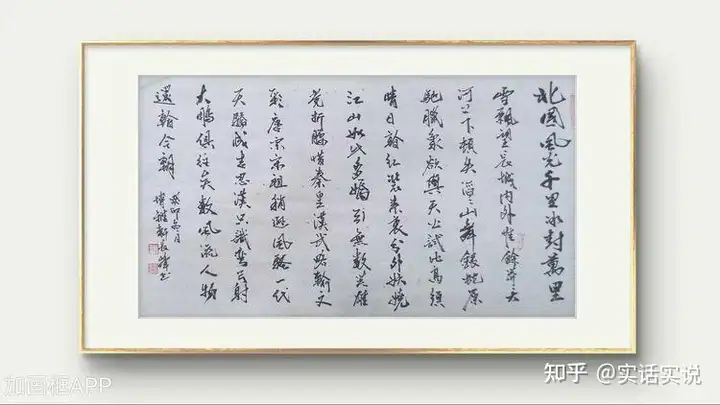 北國風光千里冰封萬里
雪飄望長城内外惟餘莽莽大
河上下頓失滔滔山舞銀蛇原
馳臘象欲與天公試比高須
晴日看紅裝素裹分外妖嬈
江山如此多嬌引無數英雄
競折腰惜秦皇漢武略輸文
彩唐宗宋祖稍遜風騷一代
天驕成吉思漢只識彎弓射
大鵰俱往矣數風流人物
還看今朝
癸卯 月
知乎 @实话实说
加画框APP